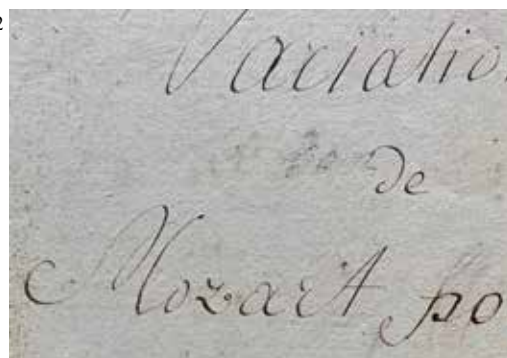 Variatio
de
Mozart po